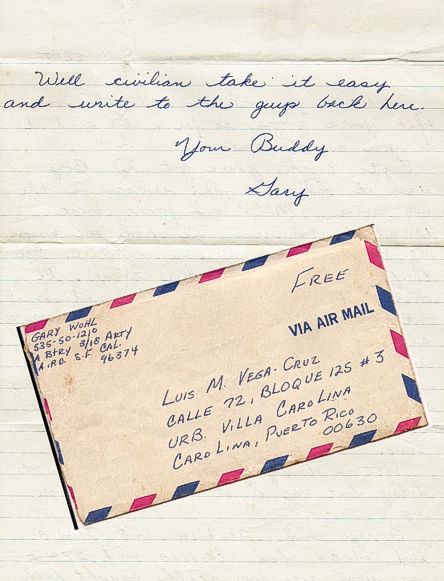 Well civilian take it easy
and write to the guys back here.
Your Buddy
Gary
GARY WOHL
535-50-1210
A Btry 3/18 ARTY
A.P.O. S.F. CAL.
96374
FREE
VIA AIR MAIL
LUIS M. VEGA-CRUZ
CALLE 72, BLOQUE 125 #3
URB. VILLA CAROLINA
CAROLINA, PUERTO RICO
00630